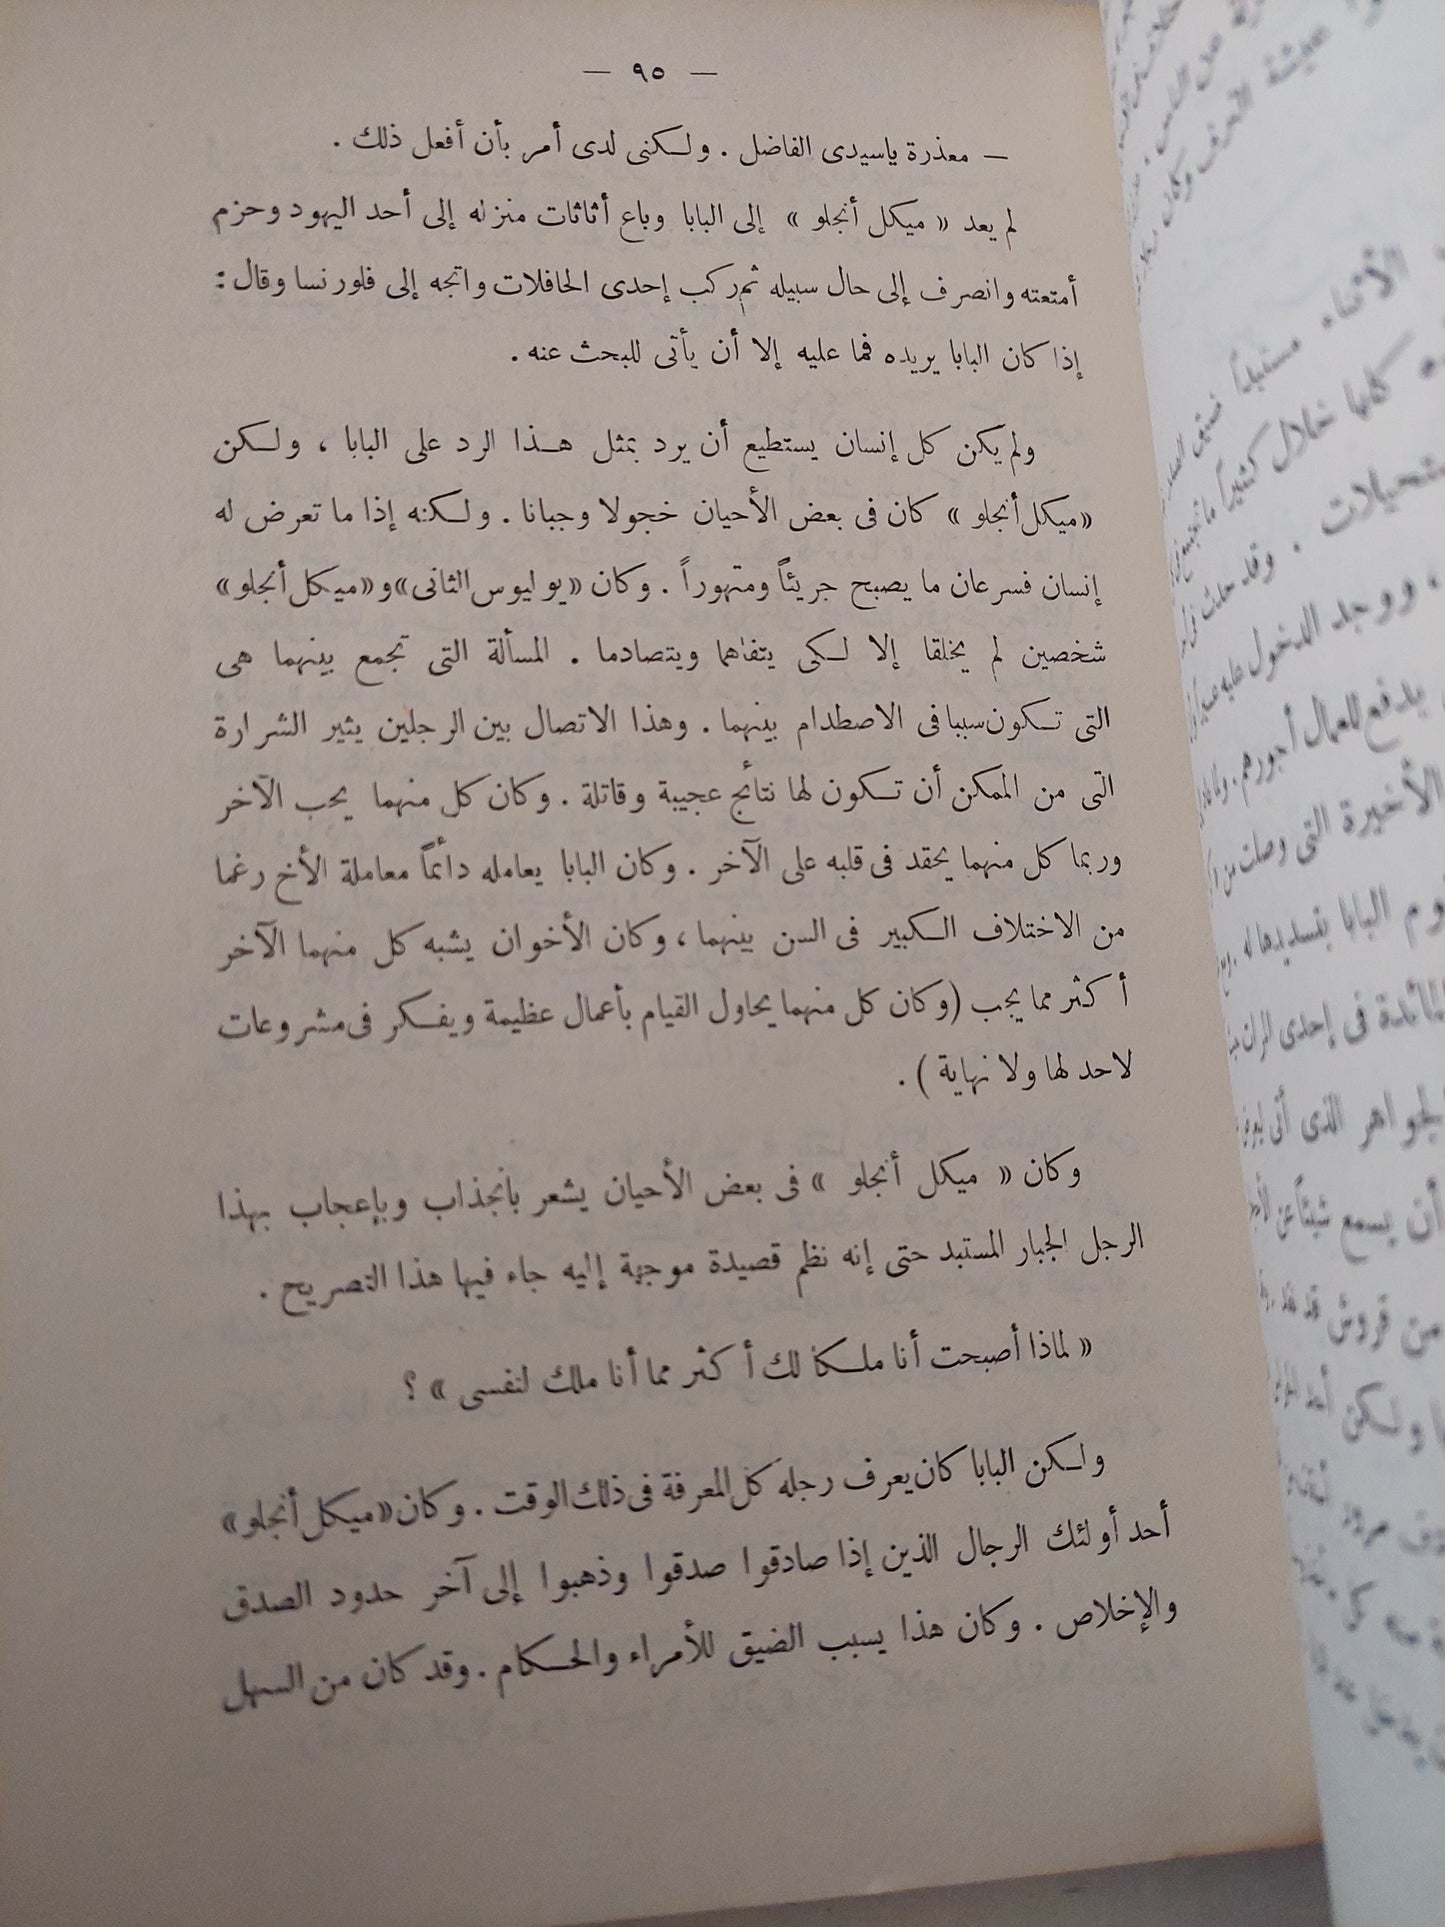 — ٩٥ —
— معذرة ياسيدى الفاضل . ولكنى لدى أمر بأن أفعل ذلك .
لم يعد « ميكل أنجلو » إلى البابا وباع أثاثات منزله إلى أحد اليهود وحزم
أمتعته وانصرف إلى حال سبيله ثم ركب إحدى الحافلات واتجه إلى فلورنسا وقال :
إذا كان البابا يريده فما عليه إلا أن يأتى للبحث عنه .
ولم يكن كل إنسان يستطيع أن يرد بمثل هذا الرد على البابا ، ولكن
« ميكل أنجلو » كان فى بعض الأحيان خجولا وجبانا . ولكنه إذا ما تعرض له
إنسان فسرعان ما يصبح جريئاً ومتهوراً . وكان « يوليوس الثانى » و « ميكل أنجلو »
شخصين لم يخلقا إلا لكى يتفاهما ويتصادما . المسألة التى تجمع بينهما هى
التى تكون سببا فى الاصطدام بينهما . وهذا الاتصال بين الرجلين يثير الشرارة
التى من الممكن أن تكون لها نتائج عجيبة وقاتلة . وكان كل منهما يحب الآخر
وربما كل منهما يحقد فى قلبه على الآخر . وكان البابا يعامله دائماً معاملة الأخ رغما
من الاختلاف الكبير فى السن بينهما ، وكان الأخوان يشبه كل منهما الآخر
أكثر مما يجب ( وكان كل منهما يحاول القيام بأعمال عظيمة ويفكر فى مشروعات
لا حد لها ولا نهاية ) .
وكان « ميكل أنجلو » فى بعض الأحيان يشعر بانجذاب وبإعجاب بهذا
الرجل الجبار المستبد حتى إنه نظم قصيدة موجهة إليه جاء فيها هذا التصريح .
« لماذا أصبحت أنا ملكا لك أكثر مما أنا ملك لنفسى » ؟
ولكن البابا كان يعرف رجله كل المعرفة فى ذلك الوقت . وكان « ميكل أنجلو »
أحد أولئك الرجال الذين إذا صادقوا صدقوا وذهبوا إلى آخر حدود الصدق
والإخلاص . وكان هذا يسبب الضيق للأمراء والحكام . وقد كان من السهل
الأثناء مستبداً
كلما خلال كثيراً
وقد حدث
، ووجد الدخول عليه
يدفع للعمال أجورهم .
الأخيرة التى وصلت من
البابا بتسديدها له .
المائدة فى إحدى
الجواهر الذى أتى
أن يسمع شيئاً عن
من قروش قد
ولكن أحد